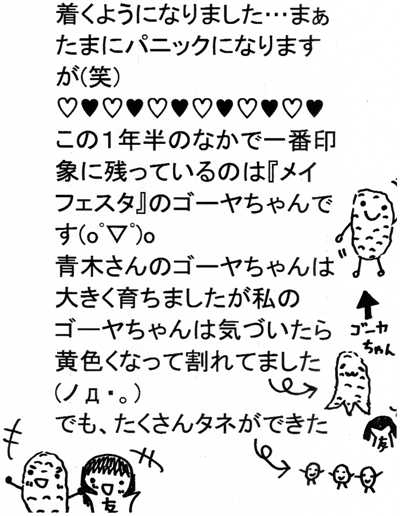 着くようになりました…まぁ
たまにパニックになります
が(笑)
♡♥♡♥♡♥♡♥♡♥♡♥
この１年半のなかで一番印
象に残っているのは『メイ
フェスタ』のゴーヤちゃんで
す(oﾟ▽ﾟ)o
青木さんのゴーヤちゃんは
大きく育ちましたが私の
ゴーヤちゃんは気づいたら
黄色くなって割れてました
(ノд・。)
でも、たくさんタネができた
ゴーヤ
ちゃん
友
友